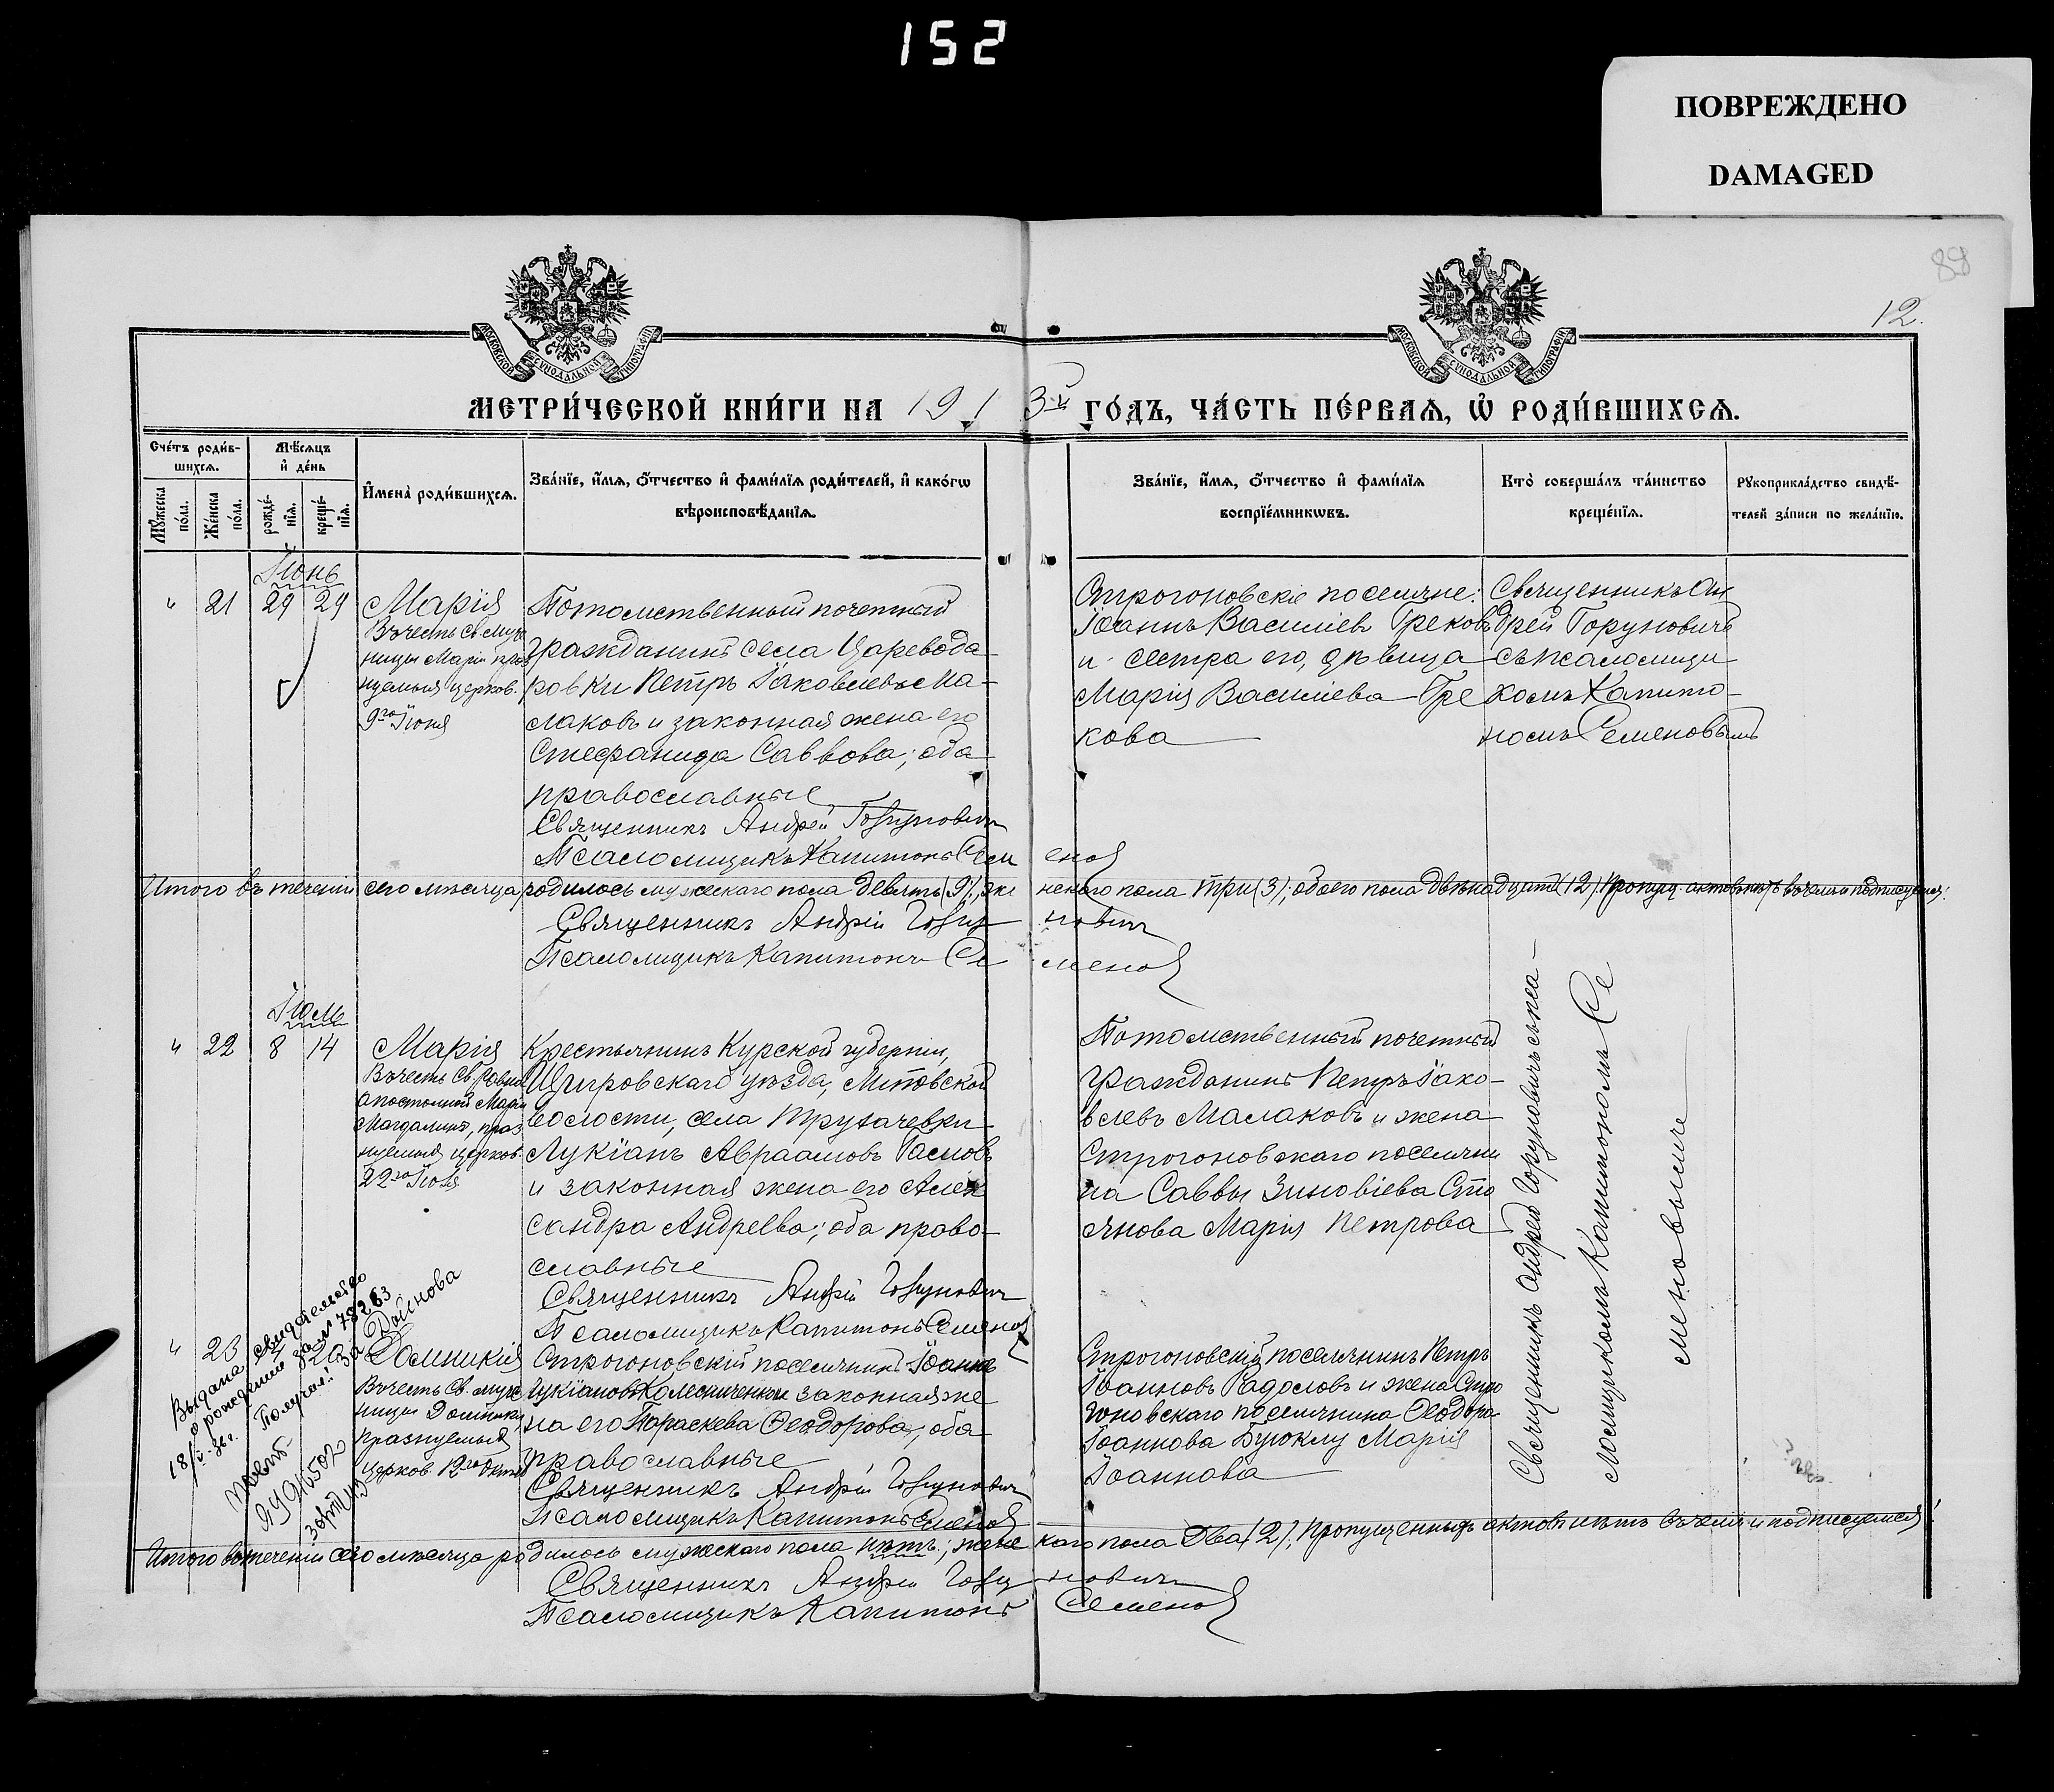 152
ПОВРЕЖДЕНО
DAMAGED
88
12.
МОСКОВСКОЙ СѴНОДАЛЬНОЙ ТИПОГРАФІИ
МОСКОВСКОЙ СѴНОДАЛЬНОЙ ТИПОГРАФІИ
МЕТРИ́ЧЕСКОЙ КНИ́ГИ НА 1913-й ГО́ДЪ, ЧА́СТЬ ПЕ́РВАѦ, Ѡ҆ РОДИ́ВШИХСѦ.
Сче́тъ роди́в-
шихсѧ.
Мꙋ́жеска
по́ла.
Же́нска
по́ла.
Мѣ́сѧцъ
и҆ де́нь
рожде́-
нїѧ.
креще́-
нїѧ.
И҆мена̀ роди́вшихсѧ.
Зва́нїе, и҆́мѧ, ѻ҆́тчество и҆ фами́лїѧ роди́телей, и҆ како́гѡ
вѣроисповѣ́данїѧ.
Зва́нїе, и҆́мѧ, ѻ҆́тчество и҆ фами́лїѧ
воспрїе́мникѡвъ.
Кто̀ соверша́лъ та́инство
креще́нїѧ.
Рꙋкоприкла́дство свидѣ́-
телей за́писи по жела́нїю.
Іюнь
" 21 29 29
Марія
Въ честь Св. муче
ницы Маріи праз
нуемыя церков.
9го Іюня
Потомственный почетный
гражданинъ села Царевода-
ровки Петръ Іаковлевъ Ма-
лаковъ и законная жена его
Стефанида Саввова; оба
православные
Священникъ Андрей Горунович
Псаломщикъ Капитонъ Семенов
Строгоновскіе поселяне:
Іоаннъ Василіевъ Грековъ
и сестра его, дѣвица
Марія Василіева Гре
кова
Священникъ Ан
дрей Горуновичъ
съ псаломщи
комъ Капито-
номъ Семеновымъ
Итого въ теченіи сего мѣсяца родилось мужескаго пола девять (9); женскаго пола три (3); обоего пола двѣнадцать (12). Пропущ. актовъ нѣтъ въ чемъ и подписуемся:
Священникъ Андрій Горунович
Псаломщикъ Капитонъ Семенов
Іюль
" 22 8 14
Марія
Въ честь Св. Равно
апостольной Маріи
Магдалины, праз
нуемыя церков.
22го Іюля
Крестьянинъ Курской губерніи,
Щигровскаго уѣзда,
волости, села
Лукіанъ Авраамовъ
и законная жена его Алек
сандра Андреева; оба право-
славные
Священникъ Андрій Горунович
Псаломщикъ Капитонъ Семенов
Потомственный почетный
гражданинъ Петръ Іако-
влевъ Малаковъ и жена
Строгоновскаго поселяни
на Саввы Зиновіева Сто
янова Марія Петрова
Священникъ Андрей Горуновичъ съ пса-
ломщикомъ Капитономъ Се
меновымъ
" 23
Домникія
Въ честь Св. муче
ницы Домники,
празнуемыя
церков. 12го Октяб
Строгоновскій поселянинъ Іоаннъ
Лукіановъ Колесниченко и законная же
на его Параскева Ѳеодорова; оба
православные
Священникъ Андрій Горунович
Псаломщикъ Капитонъ Семенов
Строгоновскій поселянинъ Петръ
Іоанновъ Радоловъ и жена Стро
гоновскаго поселянина Ѳеодора
Іоаннова Буюклу Марія
Іоаннова
Выдана свидетельство
о рождении за № 78263
18/V-36г. Получил: за Дойнова
Итого въ теченіи сего мѣсяца родилось мужескаго пола нѣтъ; женскаго пола два (2); Пропущенныхъ актовъ нѣтъ въ чемъ и подписуемся:
Священникъ Андрій Горунович
Псаломщикъ Капитонъ Семенов